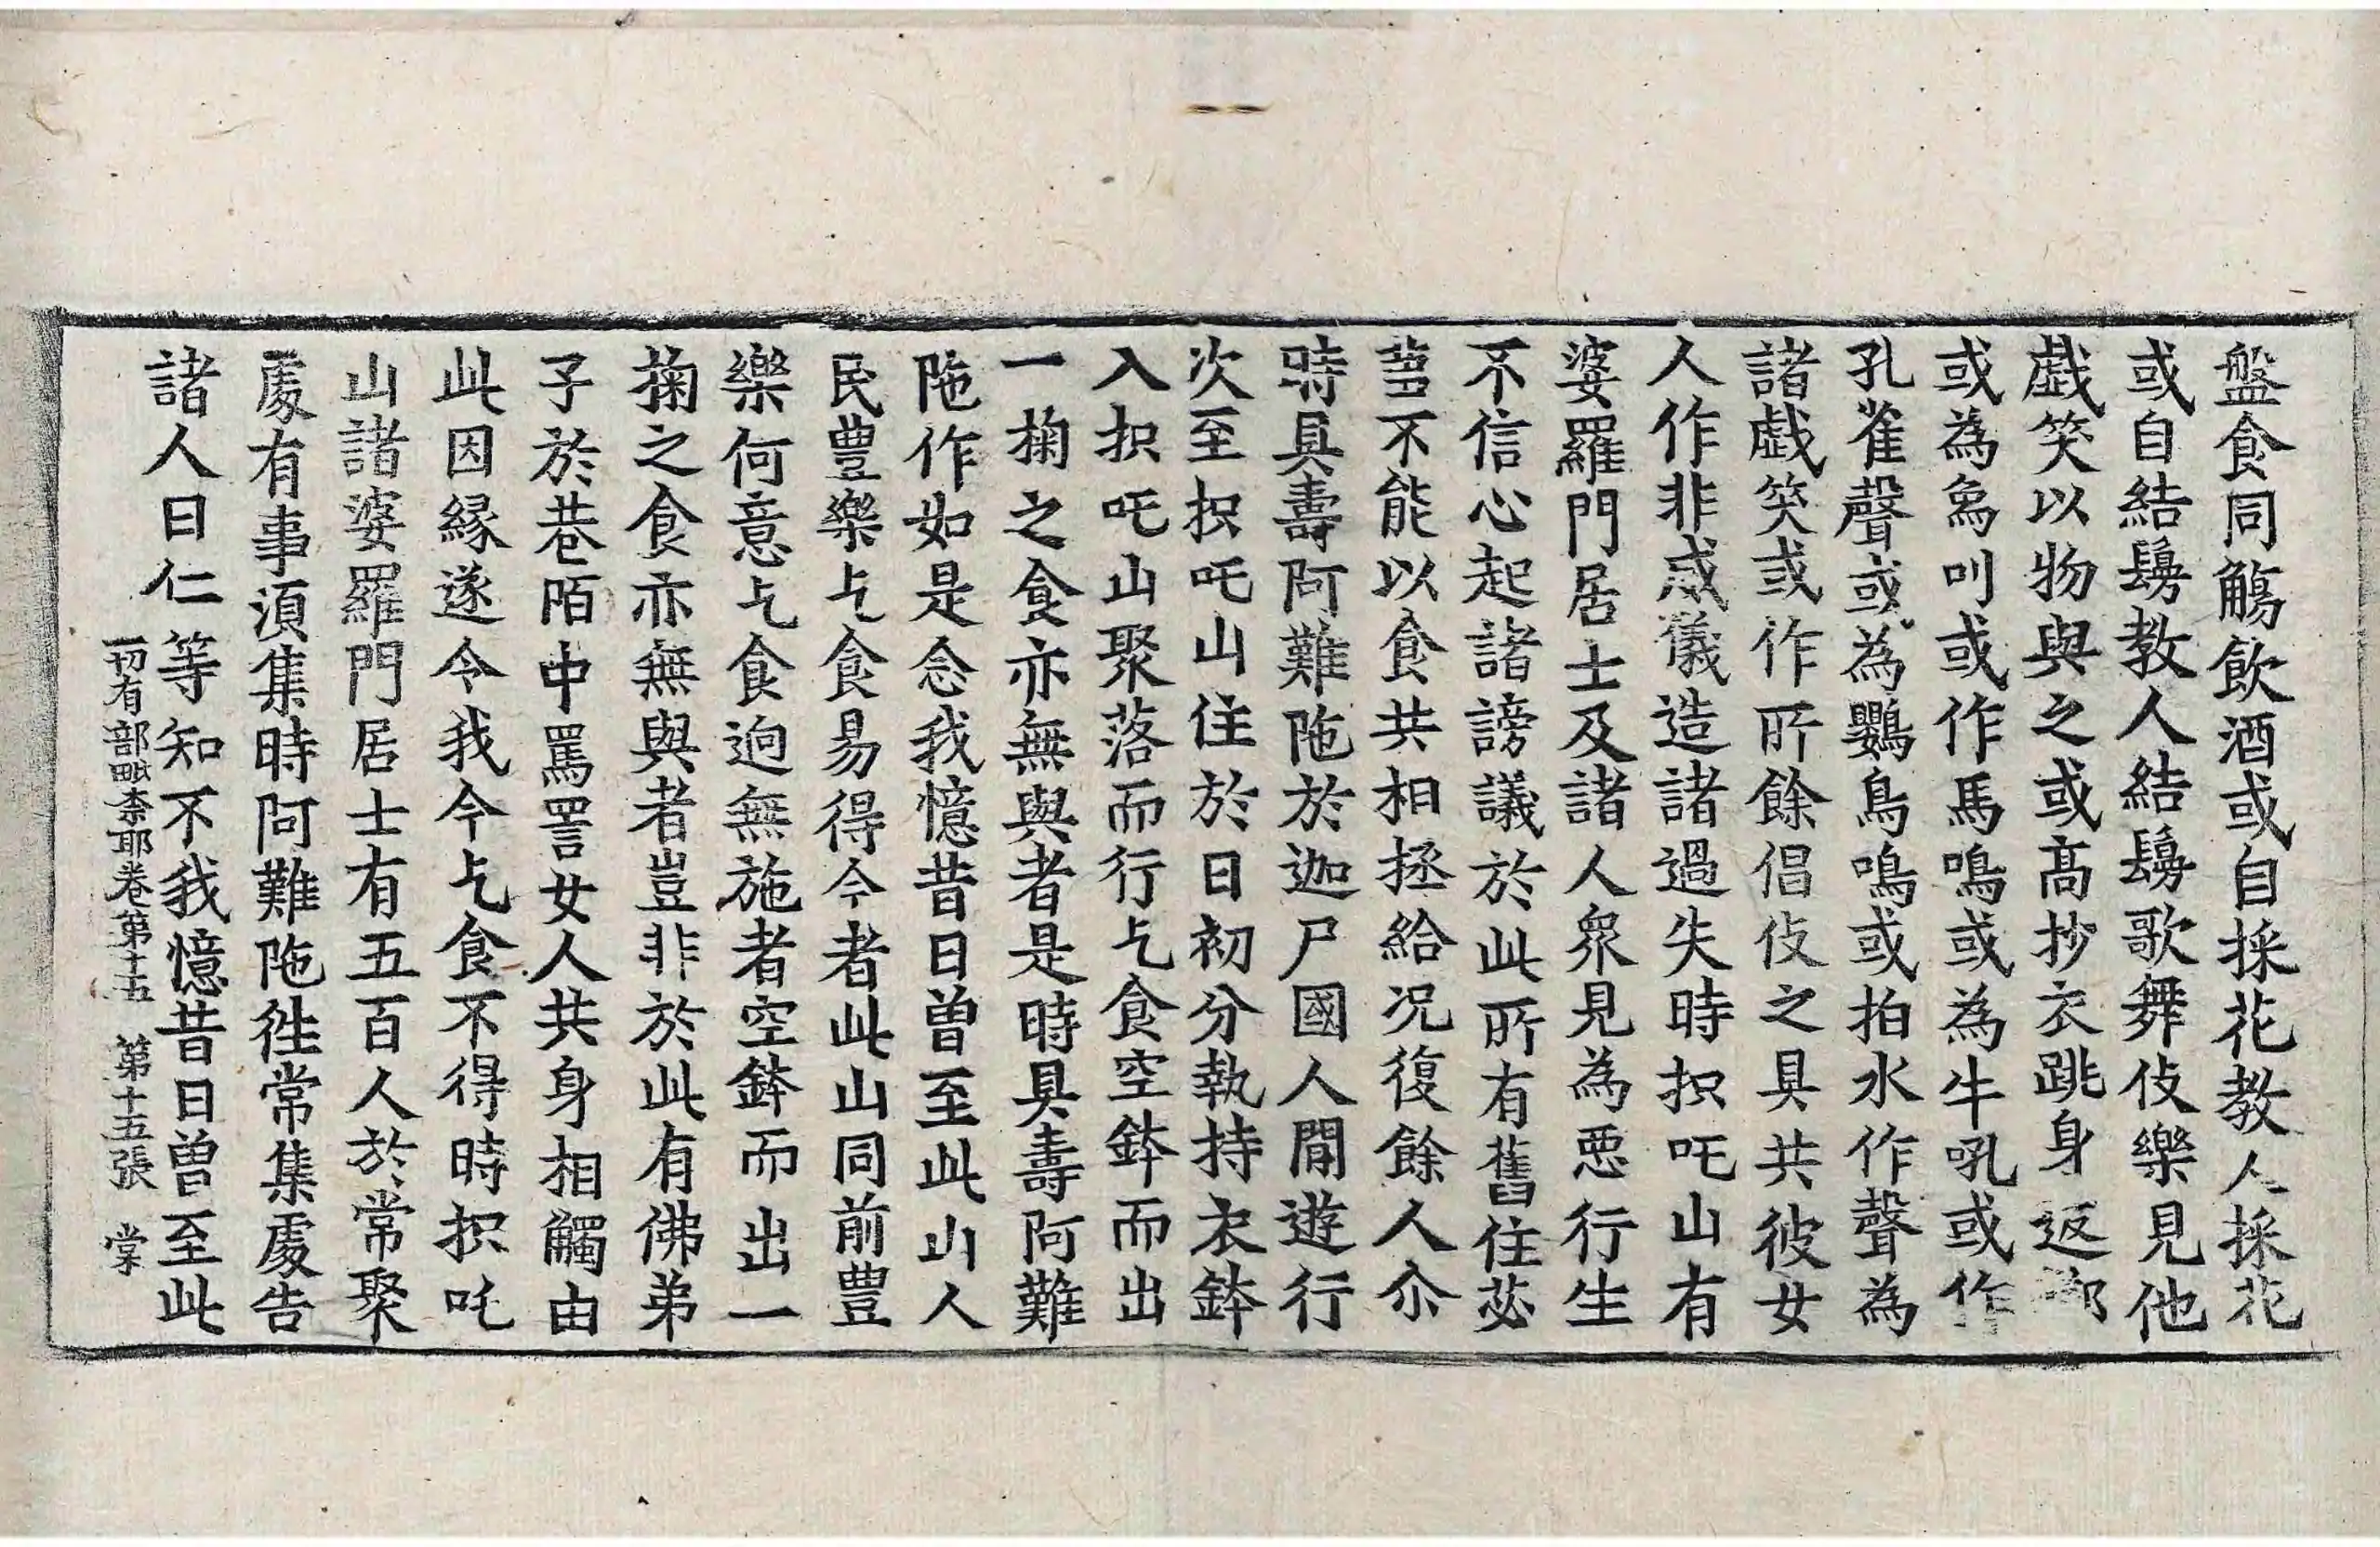 盤食同觴飲酒或自採花教人採花
或自結鬘教人結鬘歌舞伎樂見他
戯笑以物與之或高抄衣跳身返擲
或為象叫或作馬鳴或為牛吼或作
孔雀聲或為鸚鳥鳴或拍水作聲為
諸戯笑或作所餘倡伎之具共彼女
人作非威儀造諸過失時抧吒山有
婆羅門居士及諸人衆見為惡行生
不信心起諸謗議於此所有舊住苾
芻不能以食共相拯給况復餘人尒
時具壽阿難陁於迦尸國人間遊行
次至抧吒山住於日初分執持衣鉢
入抧吒山聚落而行乞食空鉢而出
一掬之食亦無與者是時具壽阿難
陁作如是念我憶昔日曾至此山人
民豊樂乞食易得今者此山同前豊
樂何意乞食逈無施者空鉢而出一
掬之食亦無與者豈非於此有佛弟
子於巷陌中罵詈女人共身相觸由
此因縁遂令我今乞食不得時抧吒
山諸婆羅門居士有五百人於常聚
處有事須集時阿難陁徃常集處告
諸人曰仁等知不我憶昔日曾至此
一切有部毗柰耶卷第十五 第十五張 棠